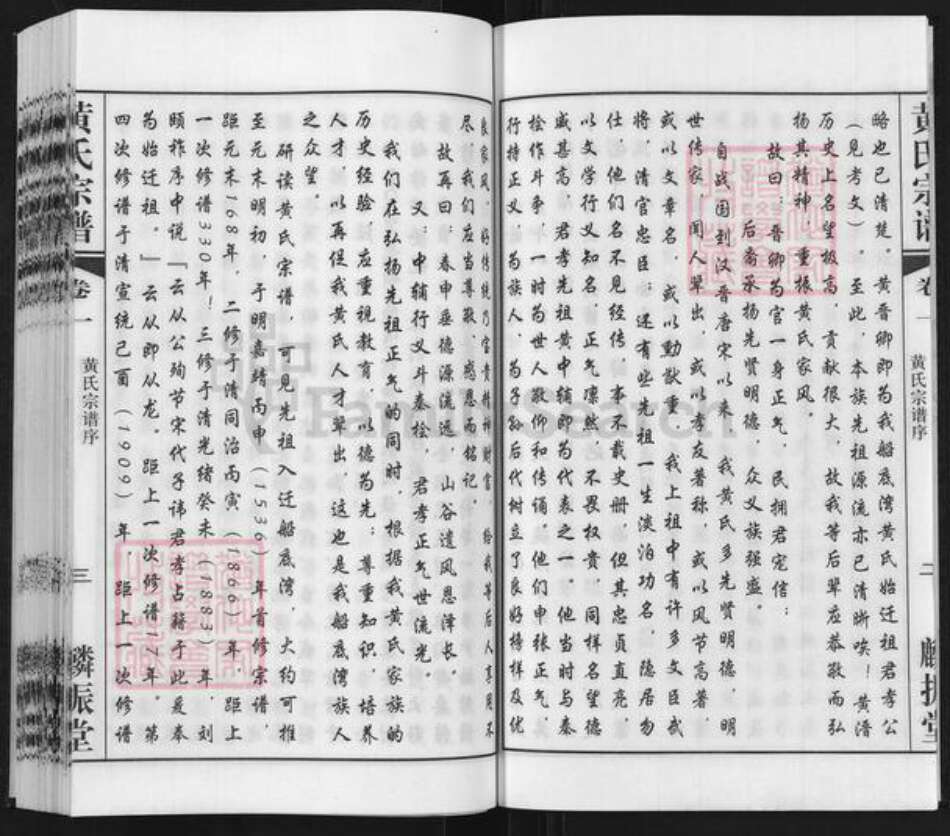 黄氏宗谱
卷一
黄氏宗谱序
二
麟振堂
略也已清楚。黄晋卿即为我船底湾黄氏始迁祖君孝公
（见考文）至此，本族先祖源流亦已清晰唉！黄潽
历史上名望极高，贡献很大，故我等后辈应恭敬而弘
扬其精神，重振黄氏家风。
故曰：晋卿为官一身正气，民拥君宠信；
后裔承扬先贤明德，众义族强盛。
自战国到汉晋唐宋以来，我黄氏多先贤明德，明
世传家，闻人辈出，或以孝友著称，或以风节高著，
或以文章名，或以勤猷重。我上祖中有许多文臣武
将，清官忠臣；还有些先祖一生淡泊功名，隐居勿
仕，他们名不见经传，事不载史册，但其忠贞直亮，
以文学行义知名，正气凛然，不畏权贵，同样名望德
威甚高，君孝先祖黄中辅即为代表之一。他当时与秦
桧作斗争，一时为世人敬仰和传诵。他们申张正气、
行持正义，为族人、为子孙后代树立了良好榜样及优
良家风。好传统乃宝贵精神财富，给我等后人享用不
尽，我们应当尊敬、感恩而铭记。
故再曰：春申垂德源流远，山谷遗风恩泽长。
又：中辅行义斗秦桧，君孝正气世流光。
我们在弘扬先祖正气的同时，根据我黄氏家族的
历史经验，应重视教育，以德为先；尊重知识，培养
人才，以再促我黄氏人才辈出，这也是我船底湾族人
之众望。
研读黄氏宗谱，可见先祖入迁船底湾，大约可推
至元末明初，于明嘉靖丙申（1536）年首修宗谱，
距元末168年，二修于清同治丙寅（1866）年，距上
一次修谱330年！三修于清光绪癸未（1883）年，刘
颐祚序中说「云从公殉节宋代子讳君孝占籍于此爰奉
为始迁祖。」云从即从龙。距上一次修谱17年。第
四次修谱于清宣统己酉（1909）年，距上一次修谱
黄氏宗谱
卷一
黄氏宗谱序
三
麟振堂
FamilySearch